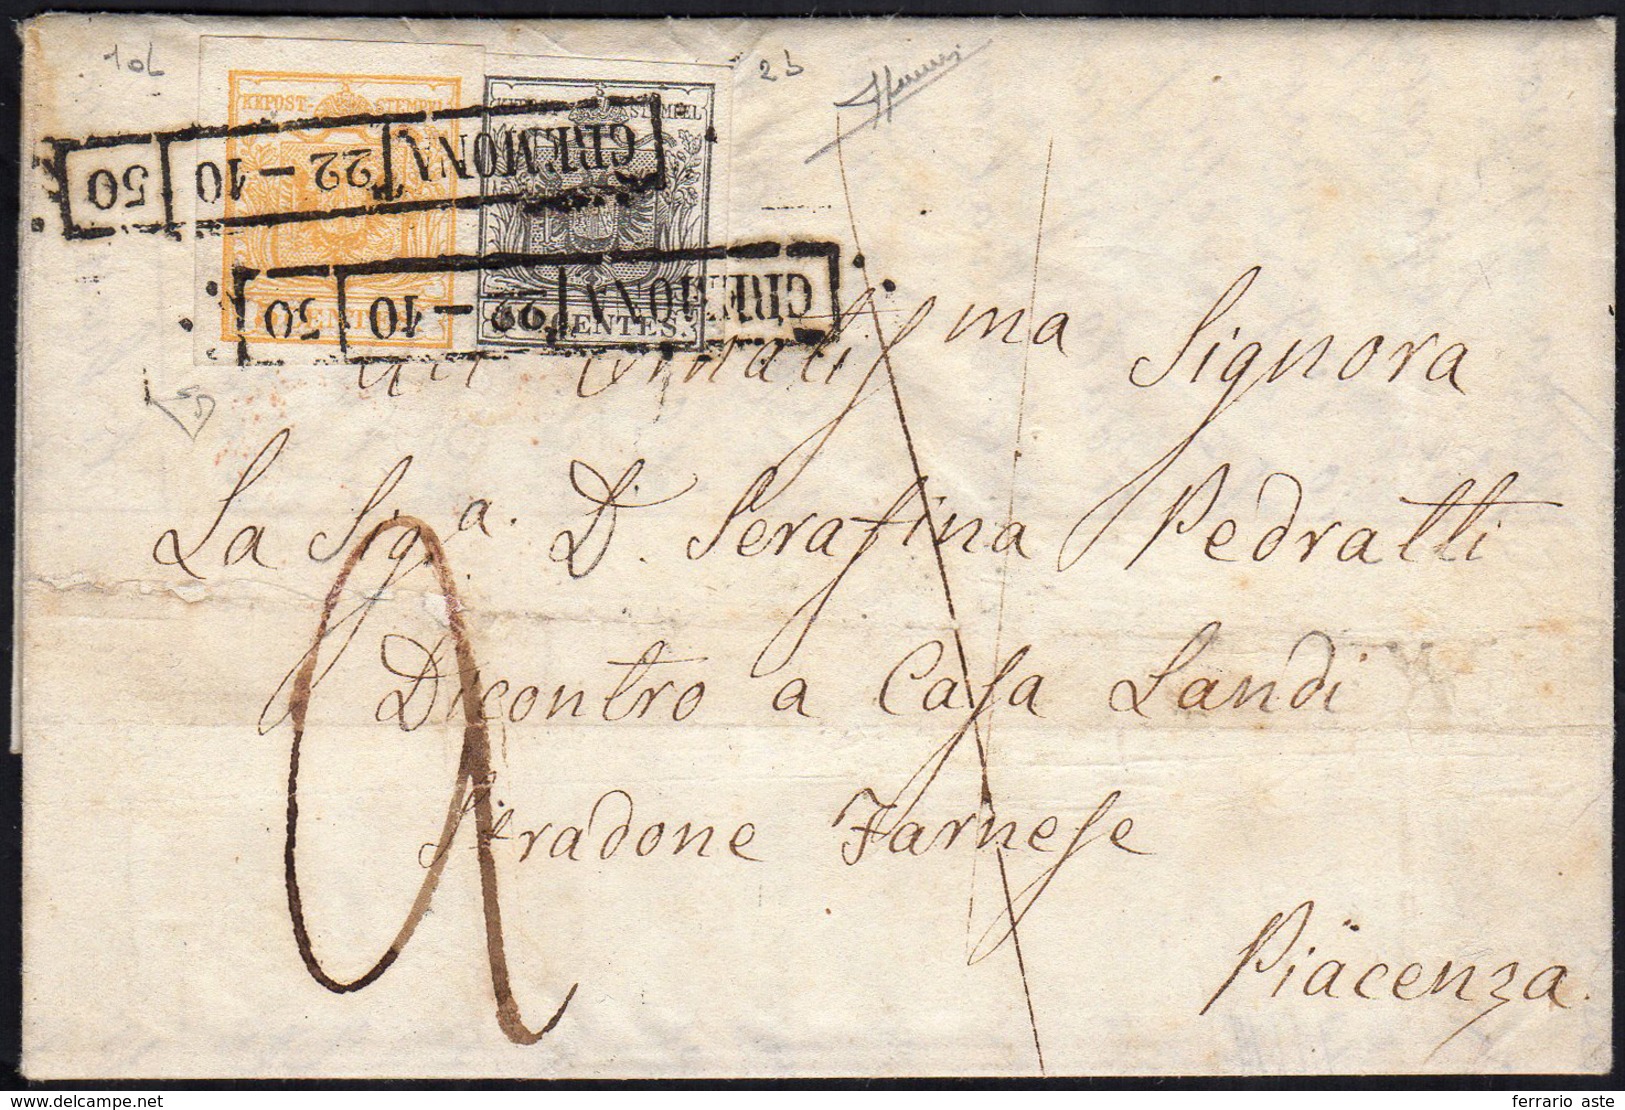 10L
2b
KKPOST- STEMPEL
KKPOST- STEMPEL
CREMONA 22 – 10 50
CREMONA 22 – 10 50
CENTES.
CENTES.
Ornatissma Signora
La Sig.a D. Serafina Pedratti
Dicontro a Casa Landi
Stradone Farnese
Piacenza.
ferrario aste